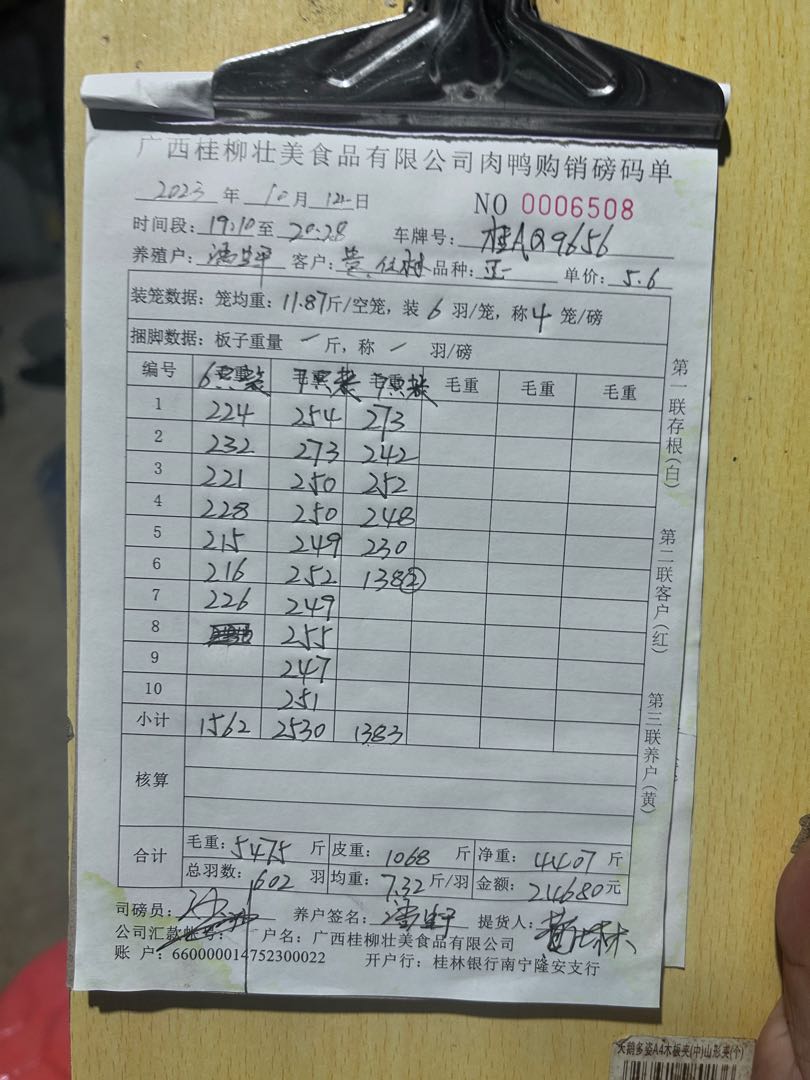 广西桂柳壮美食品有限公司肉鸭购销磅码单
2023 年 10 月 12 日 NO 0006508
时间段: 19:10 至 20:28 车牌号: 桂AQ9656
养殖户: 潘坐平 客户: 黄 林 品种: 单价: 5.6
装笼数据: 笼均重: 11.87 斤/空笼, 装 6 羽/笼, 称 4 笼/磅
捆脚数据: 板子重量 一 斤, 称 一 羽/磅
编号 6 装 7 装 7 装 毛重 毛重 毛重
1 224 254 273
2 232 273 242
3 221 250 252
4 228 250 248
5 215 249 230
6 216 252 138②
7 226 249
8 255
9 247
10 251
小计 1562 2530 1383
核算
合计 毛重: 5475 斤 皮重: 1068 斤 净重: 4407 斤
总羽数: 602 羽 均重: 7.32 斤/羽 金额: 24680 元
司磅员: 养户签名: 潘坐平 提货人:
公司汇款帐号: 户名: 广西桂柳壮美食品有限公司
账 户: 660000014752300022 开户行: 桂林银行南宁隆安支行
第一联存根(白)
第二联客户(红)
第三联养户(黄)
天鹅多姿A4木板夹(中)山形夹(个)